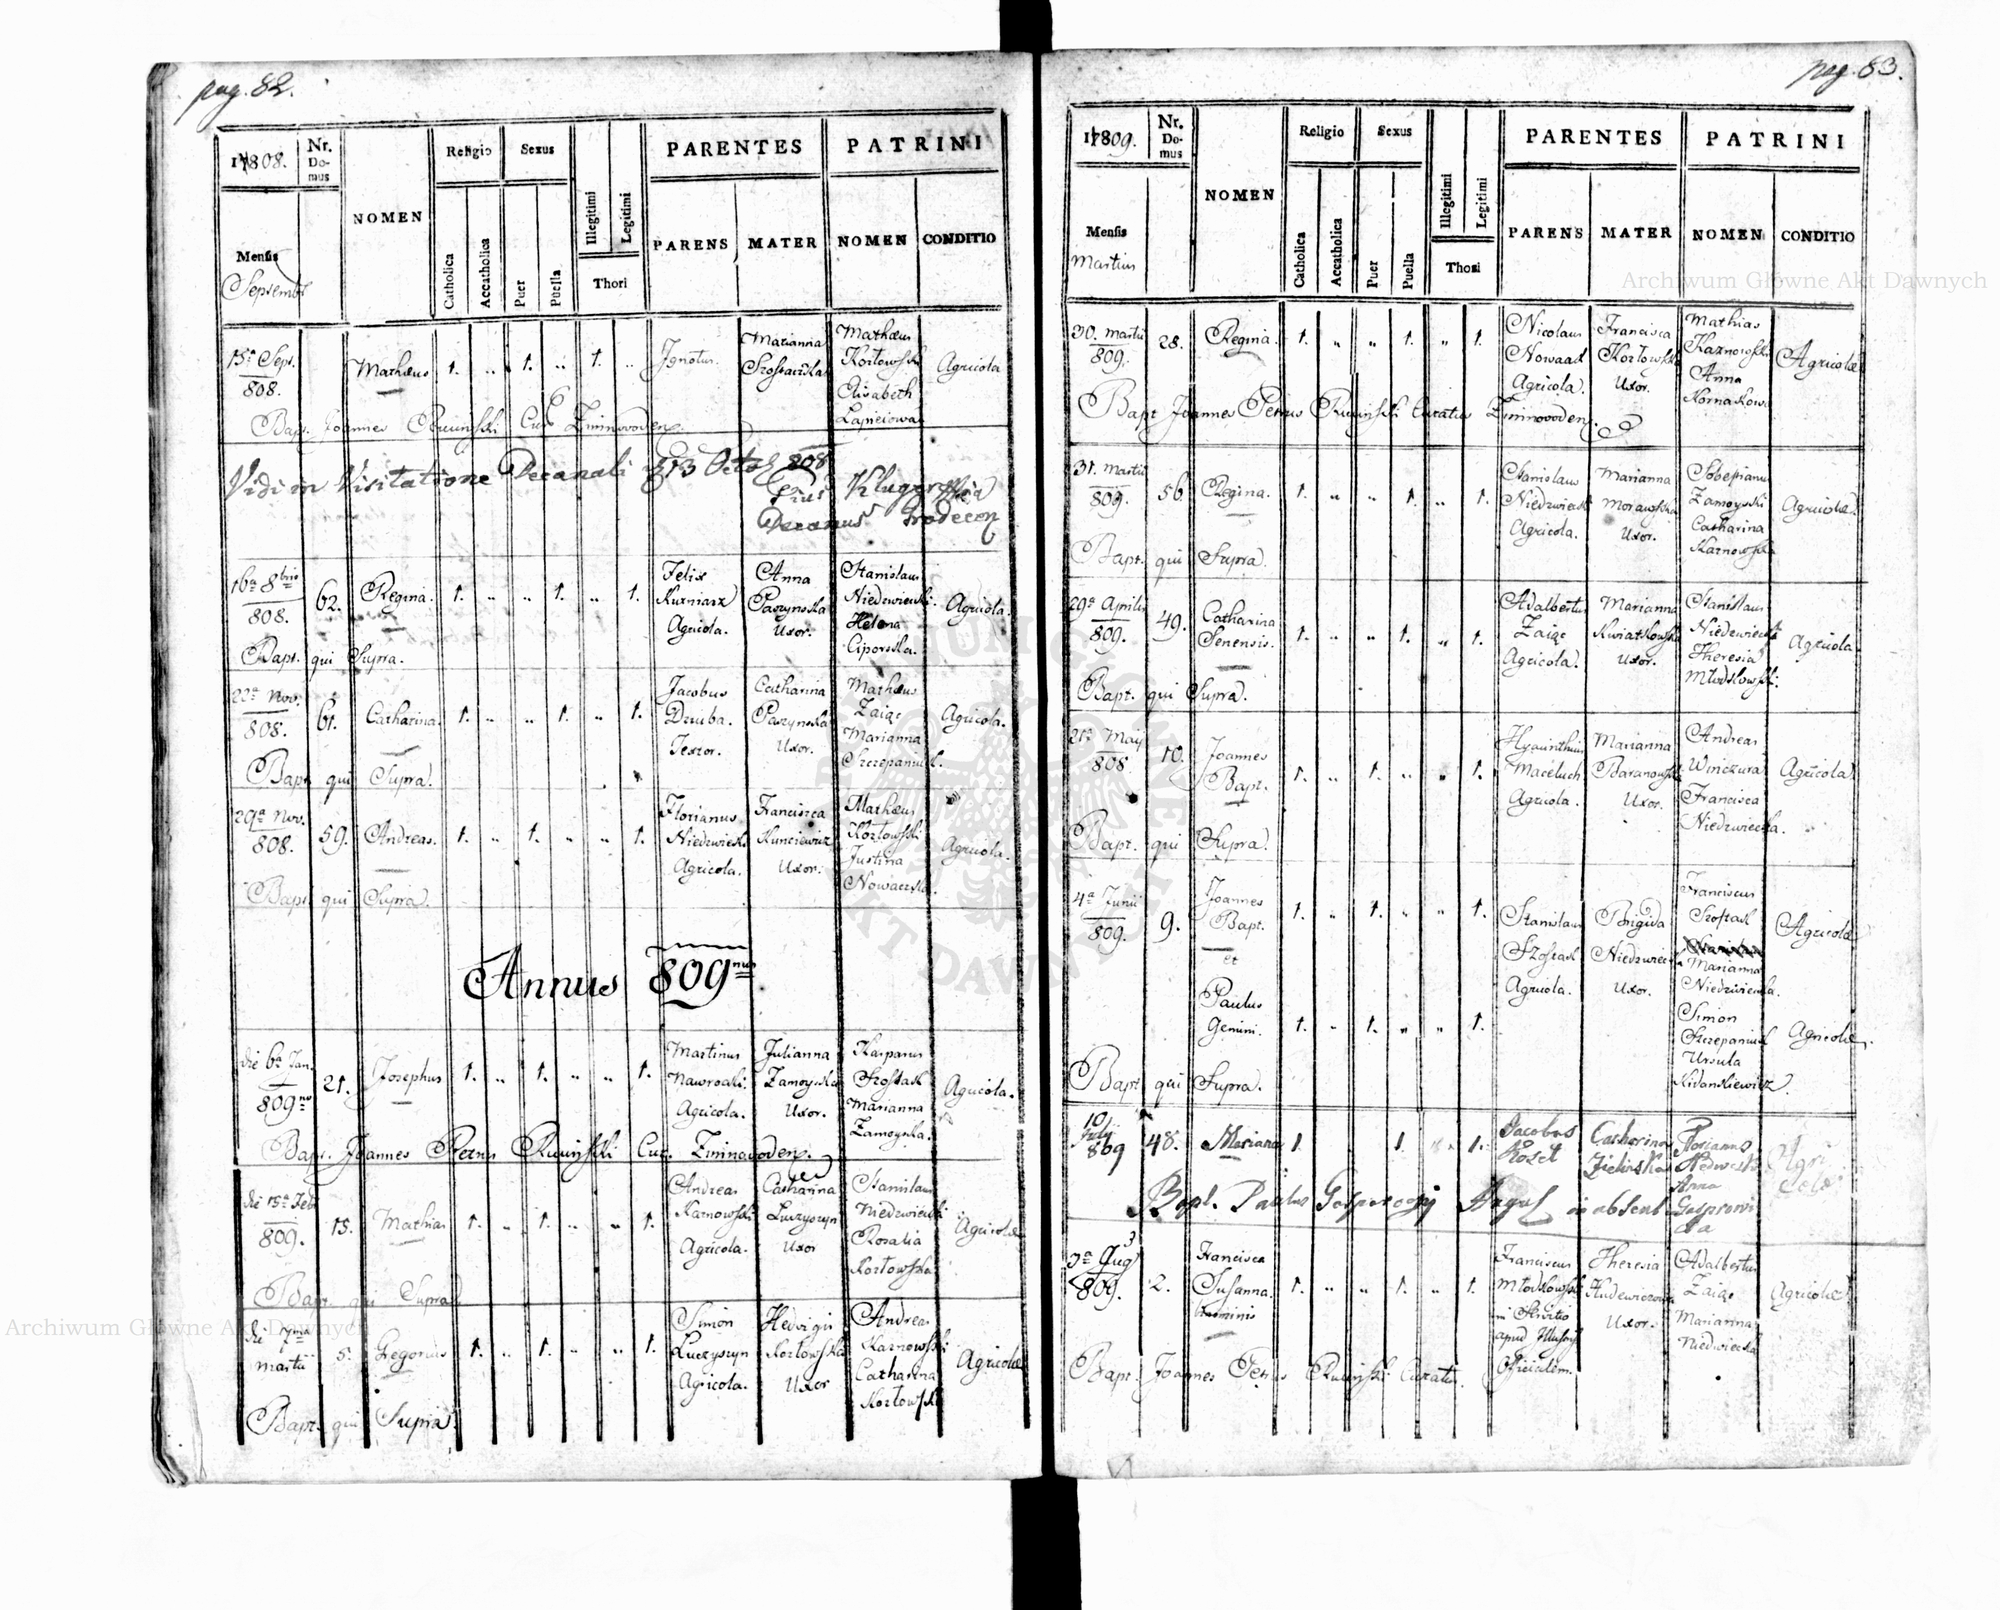 pag. 82.
1808.
Nr. Domus
NOMEN
Religio
Sexus
PARENTES
PATRINI
Mensis
Septembr
Catholica
Accatholica
Puer
Puella
Illegitimi
Legitimi
Thori
PARENS
MATER
NOMEN
CONDITIO
15a Sept. 808.
Mathæus
1. „ 1. „ 1. „
Ignotus.
Marianna
Mathæus Kozłowski Elisabeth
Agricola
Bapt. Joannes Cur Zimnovoden.
Vidi in Visitatione Decanali d 13 Octob 808
Decanus Grodecen
16a 8bris 808.
62.
Regina.
1. „ „ 1. „ 1.
Felix Kuzniarz Agricola.
Anna Paszynska Uxor.
Stanislaus Niedzwiecki. Helena Ciporska.
Agricola.
Bapt. qui Supra.
22a Nov. 808.
61.
Catharina.
1. „ „ 1. „ 1.
Jacobus Dziuba. Textor.
Catharina Paszynska Uxor.
Mathæus Zaiąc Marianna Szczepaniuk.
Agricola.
Bapt qui Supra.
29a Nov. 808.
59.
Andreas.
1. „ 1. „ „ 1.
Florianus Niedzwiecki Agricola.
Francisca Kunciewicz Uxor.
Mathæus Kozłowski Justina Nowaczka.
Agricola.
Bapt qui Supra.
Annus 809nus
die 6a Jan. 809no
21.
Josephus
1. „ 1. „ „ 1.
Martinus Nawrocki. Agricola.
Julianna Zamoyska Uxor.
Kasparus Szostak Marianna Zamoyska.
Agricola.
Bapt. Joannes Petrus Cur. Zimnavoden.
die 15a Feb 809.
15.
Mathias
1. „ 1. „ „ 1.
Andreas Karnowski Agricola.
Catharina Luczyszyn Uxor
Stanislaus Niedzwiecki Rosalia Kozłowska
Agricolæ
Bapt. qui Supra
die 7ma Martii
5.
Gregorius
1. „ 1. „ „ 1.
Simon Luczyszyn Agricola.
Hedvigis Kozłowska Uxor
Andreas Karnowski Catharina Kozłowska
Agricolæ
Bapt. qui Supra.
pag. 83.
1809.
Nr. Domus
NOMEN
Religio
Sexus
PARENTES
PATRINI
Mensis
Martius
Catholica
Accatholica
Puer
Puella
Illegitimi
Legitimi
Thori
PARENS
MATER
NOMEN
CONDITIO
30. Martii 809.
28.
Regina.
1. „ „ 1. „ 1.
Nicolaus Nowaak Agricola.
Francisca Kozłowska Uxor.
Mathias Karnowski Anna Kornakowa
Agricolæ
Bapt Joannes Petrus Curatus Zimnovoden.
31. Martii 809.
56.
Regina.
1. „ „ 1. „ 1.
Stanislaus Niedzwiecki Agricola.
Marianna Morawska Uxor.
Sobestianus Zamoyski Catharina Karnowska
Agricolæ.
Bapt. qui Supra.
29a Aprilis 809.
49.
Catharina Senensis.
1. „ „ 1. „ 1.
Adalbertus Zaiąc Agricola.
Marianna Kwiatkowska Uxor.
Stanislaus Niedzwiecki Theresia Młodkowski.
Agricola
Bapt. qui Supra.
21a May 808
10.
Joannes Bapt.
1. „ 1. „ „ 1.
Hyacinthus Maceluch Agricola.
Marianna Baranowska Uxor.
Andreas Winczura Francisca Niedzwiecka.
Agricola.
Bapt. qui Supra.
4a Junii 809.
9.
Joannes Bapt.
1. „ 1. „ „ 1.
et
Paulus Gemini.
1. „ 1. „ „ 1.
Stanislaus Szostak Agricola.
Brigida Niedzwiecka Uxor.
Franciscus Szostak Marianna Niedzwiecka.
Agricolæ
Simon Szczepaniuk Ursula Kidaskiewicz.
Agricolæ.
Bapt qui Supra.
10 July 809
48.
Mariana
1 1. 1.
Jacobus Kozet
Catharina Zielinska
Florianus Nedwecki Anna
Agricolæ
Bapt. Paulus in absent
3a Aug 809.
2.
Francisca Susanna. binominis
1. „ „ 1. „ 1.
Franciscus Młodkowski in Servitio apud Officialem.
Theresia Uxor.
Adalbertus Zaiąc Marianna Niedwiecka
Agricolæ
Bapt. Joannes Petrus Curatus.
Archiwum Główne Akt Dawnych
Archiwum Główne Akt Dawnych
ARCHIWUM GŁÓWNE AKT DAWNYCH